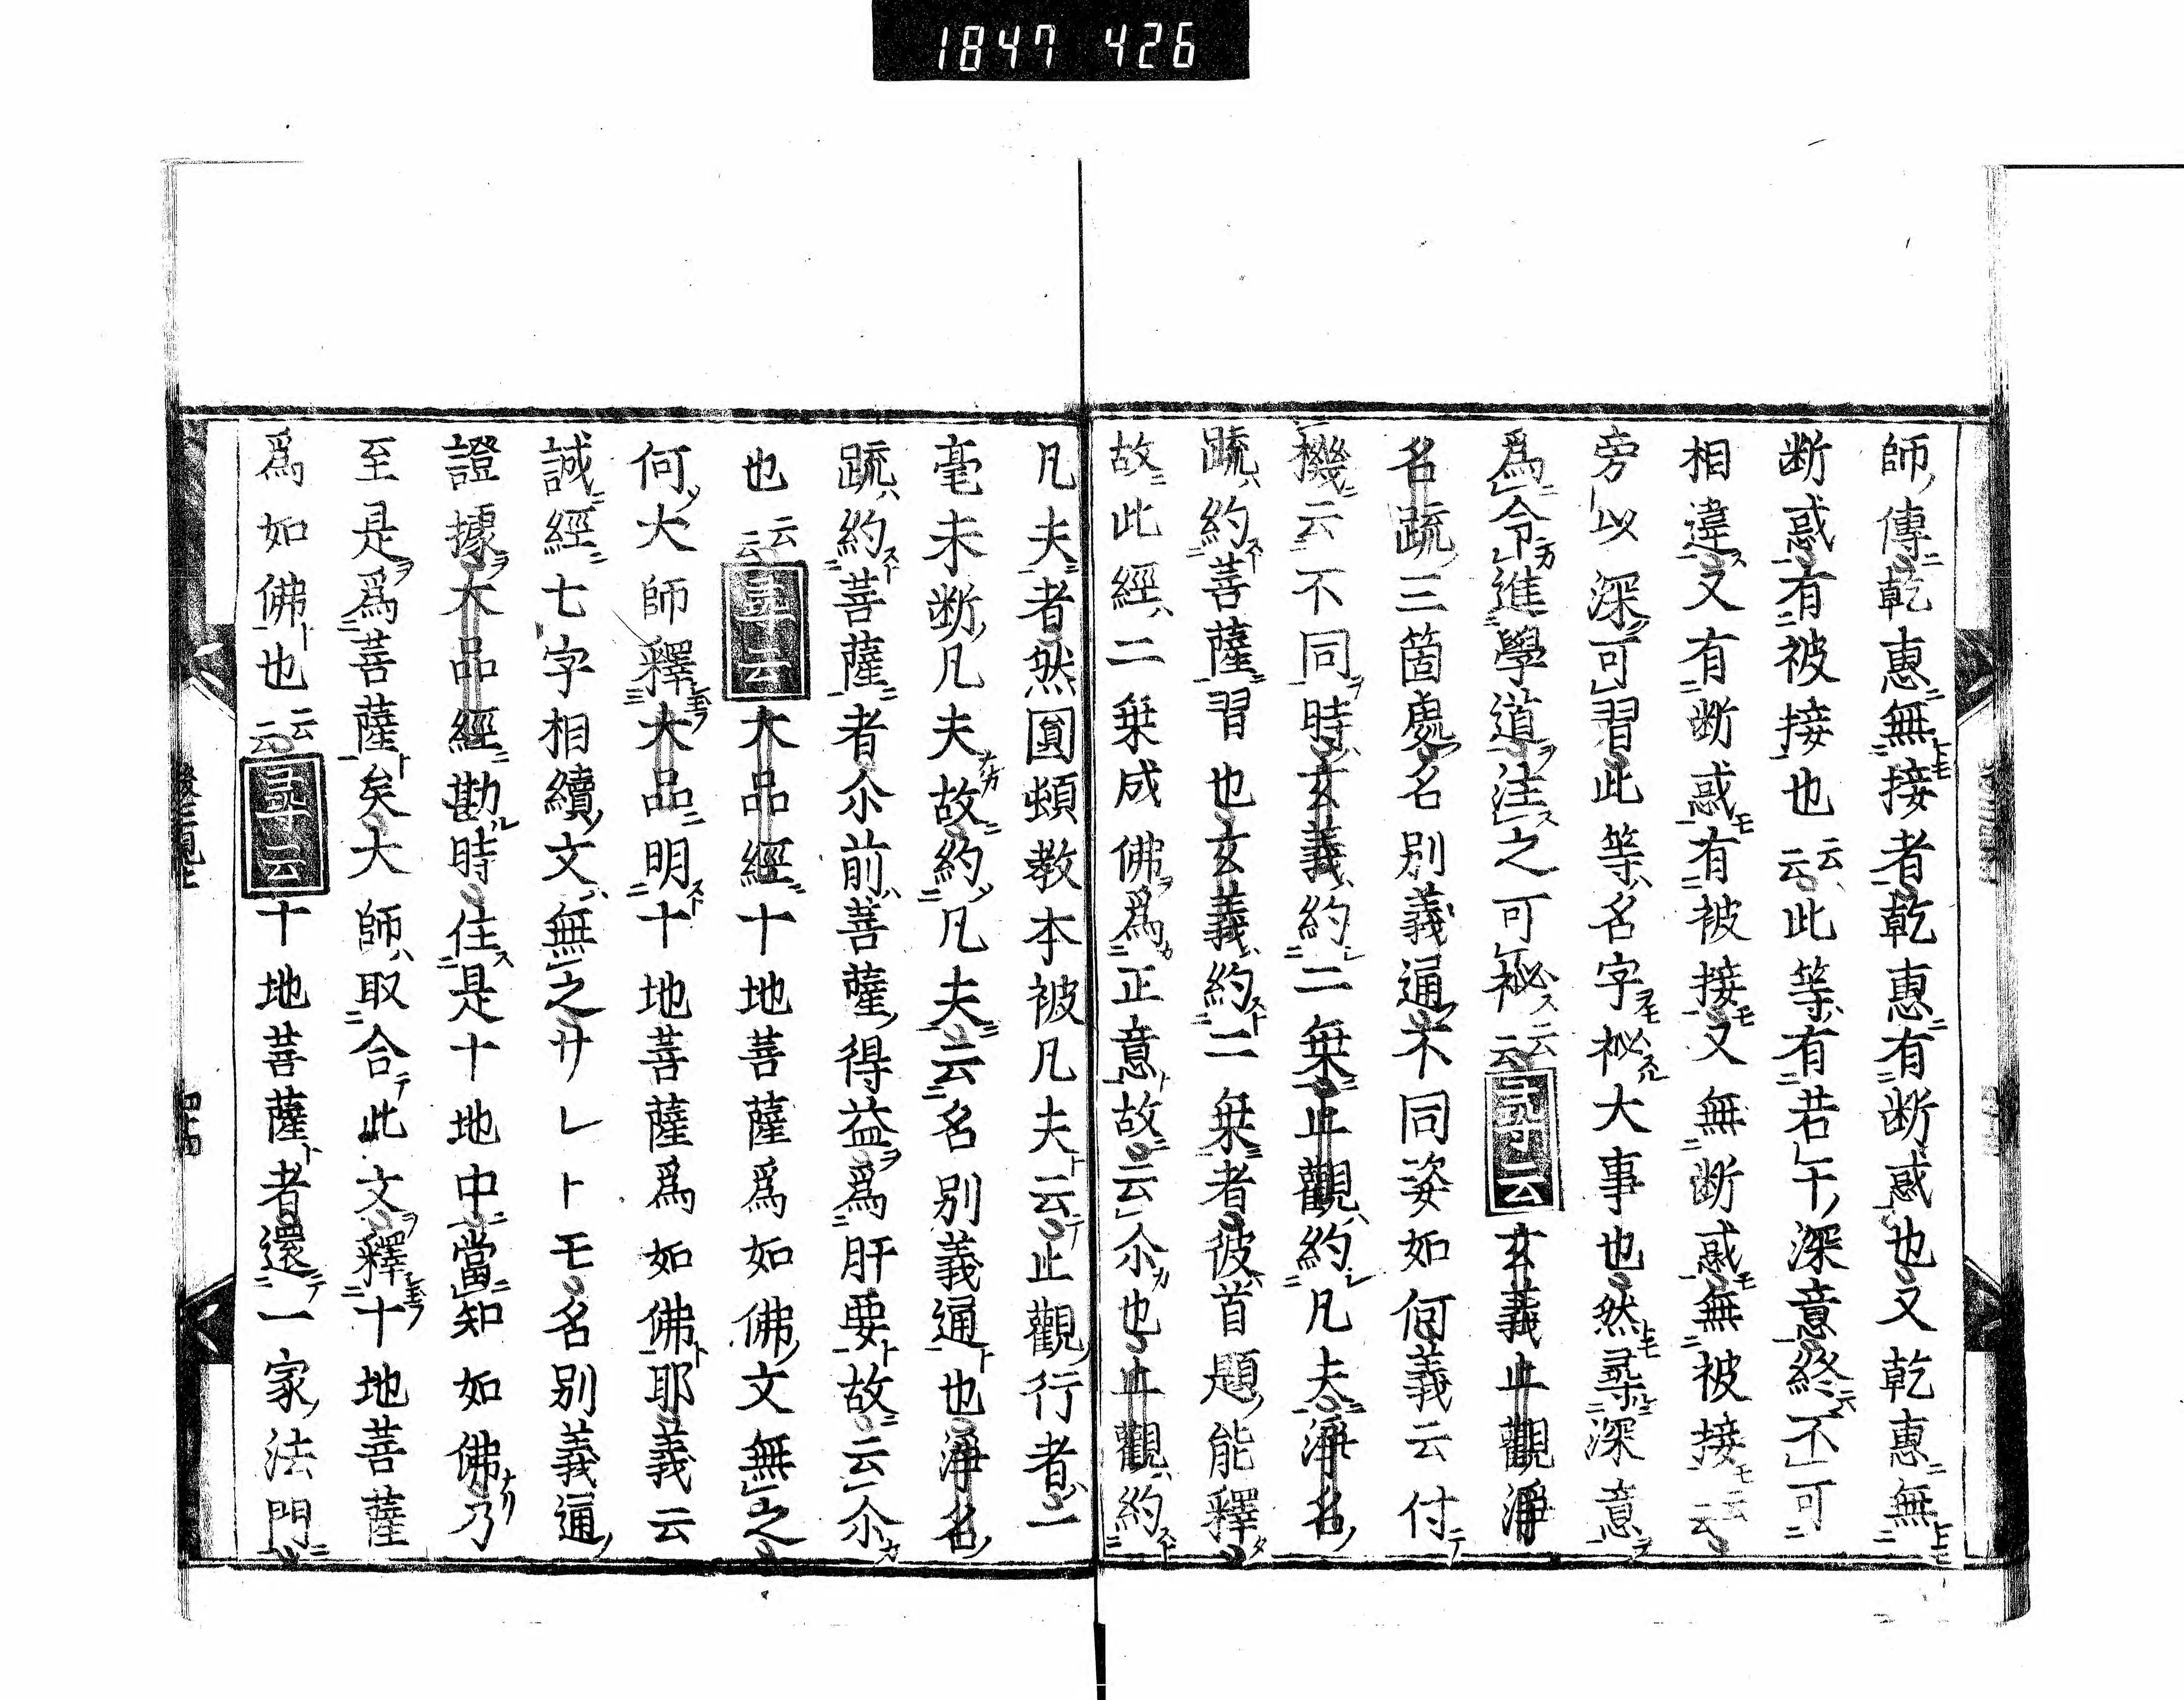 1847 426
師傳乾惠無接者乾惠有断惑也又乾惠無
断惑有被接也云云此等有若干深意終不可
相違又有断惑有被接又無断惑無被接云云
旁以深可習此等名字秘大事也然尋深意
爲令進學道注之可秘云云尋云玄義止觀淨
名疏三箇處名別義通不同姿如何義云付
機云不同時玄義約二乗止觀約凡夫淨名
疏約菩薩習也玄義約二乗者彼首題能釋
故此經二乗成佛爲正意故云尒也止觀約
凡夫者然圓頓教本被凡夫云止觀行者一
毫未断凡夫故約凡夫云名別義通也淨名
疏約菩薩者尒前菩薩得益爲肝要故云尒
也云云尋云大品經十地菩薩爲如佛文無之
何大師釋大品明十地菩薩爲如佛耶義云
誠經七字相續文無之サレトモ名別義通
證據大品經勘時住是十地中當知如佛乃
至是爲菩薩矣大師取合此文釋十地菩薩
爲如佛也云云尋云十地菩薩者還一家法門